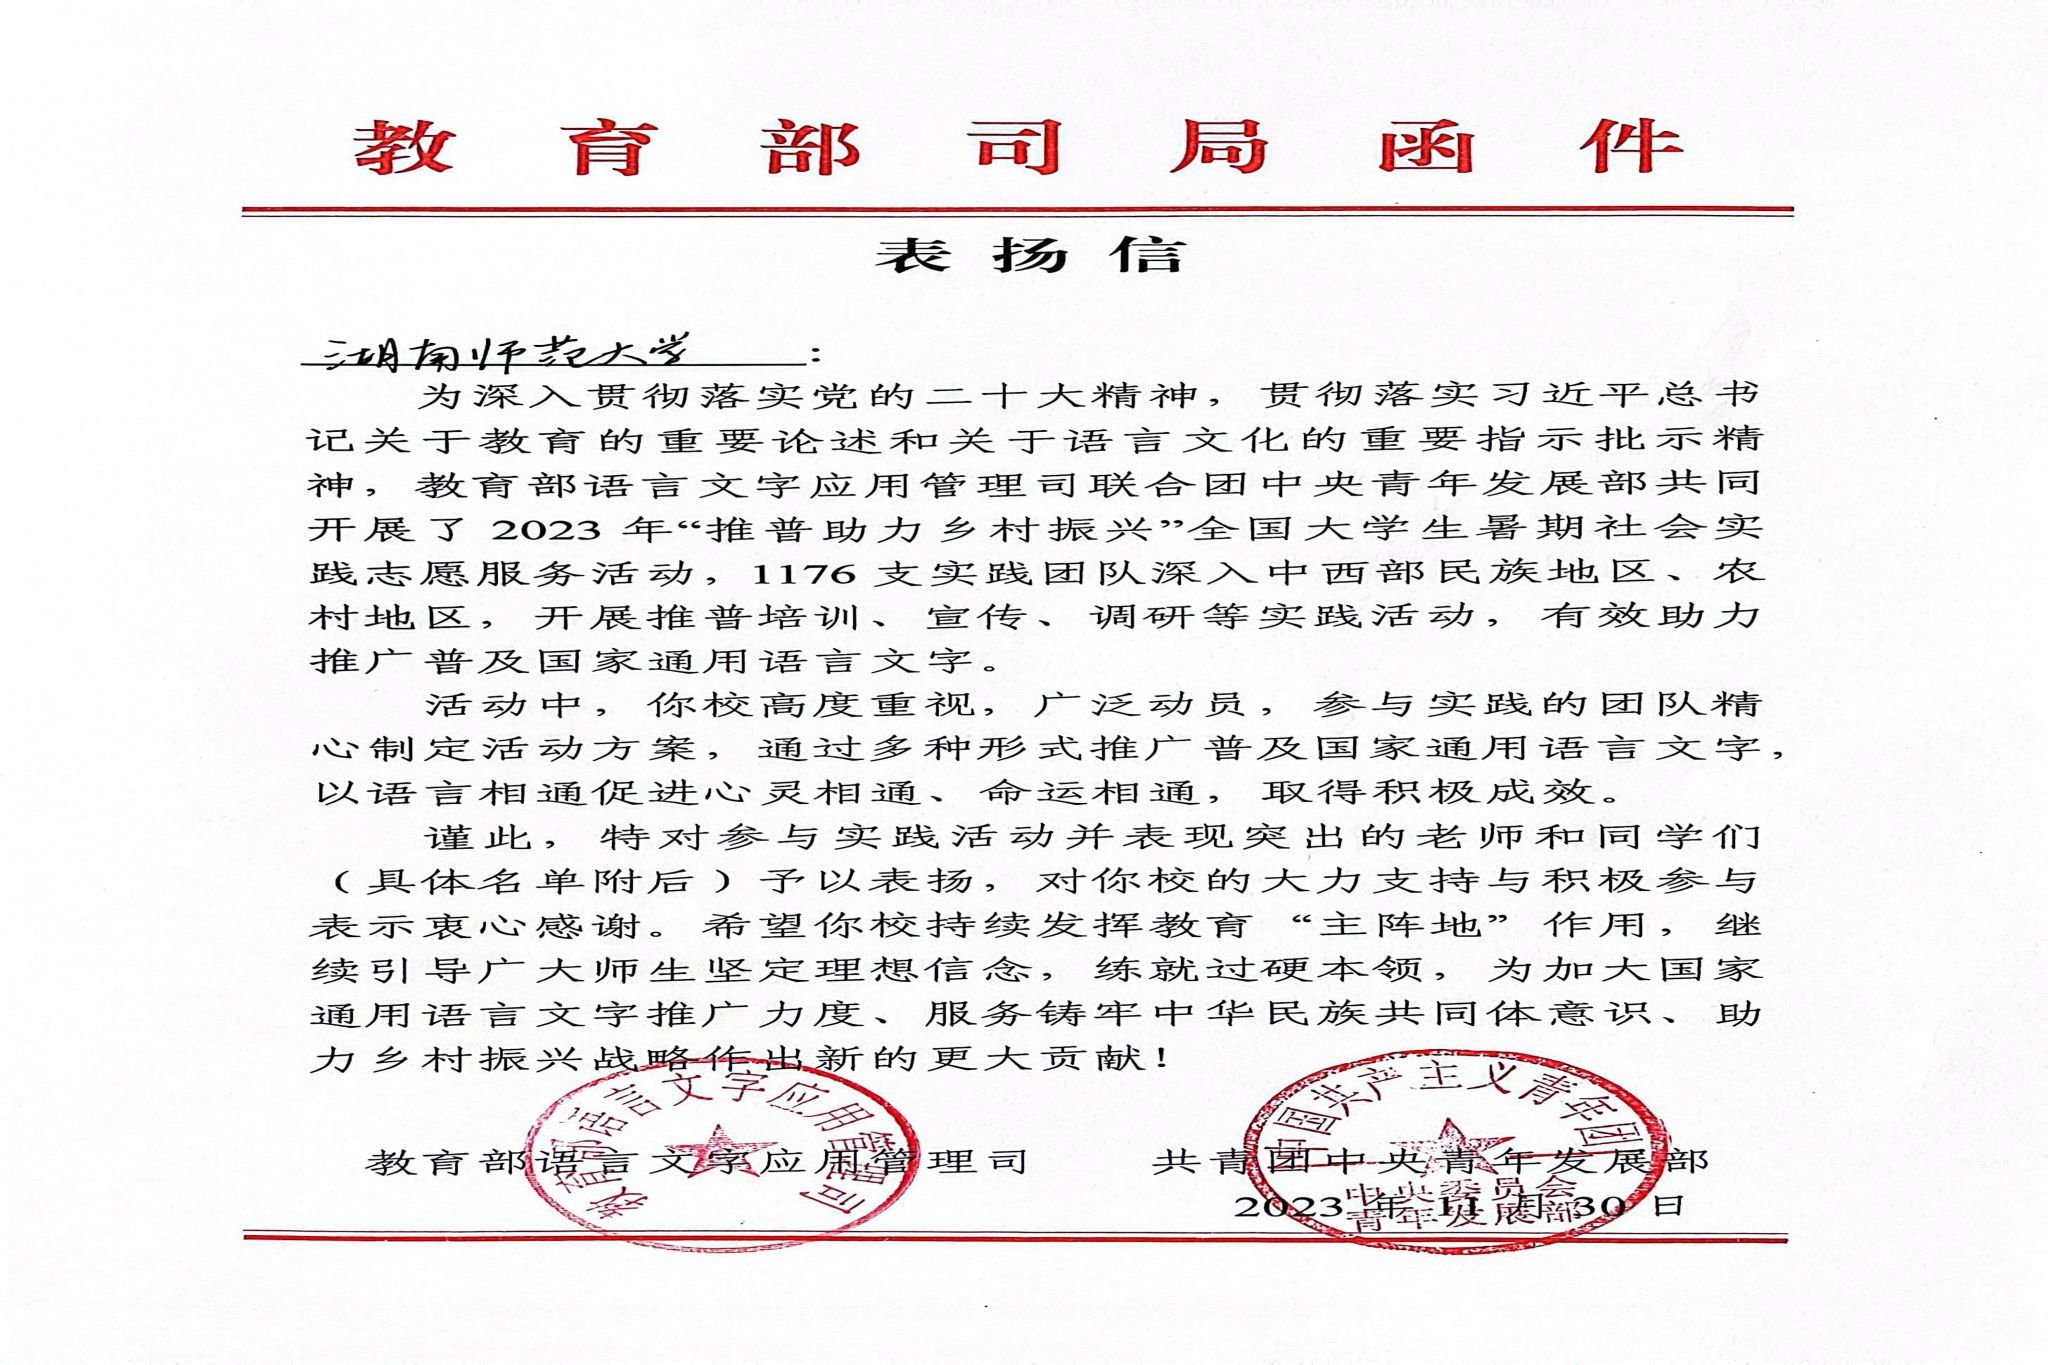 教育部司局函件
表扬信
湖南师范大学：
为深入贯彻落实党的二十大精神，贯彻落实习近平总书
记关于教育的重要论述和关于语言文化的重要指示批示精
神，教育部语言文字应用管理司联合团中央青年发展部共同
开展了 2023 年“推普助力乡村振兴”全国大学生暑期社会实
践志愿服务活动，1176 支实践团队深入中西部民族地区、农
村地区，开展推普培训、宣传、调研等实践活动，有效助力
推广普及国家通用语言文字。
活动中，你校高度重视，广泛动员，参与实践的团队精
心制定活动方案，通过多种形式推广普及国家通用语言文字，
以语言相通促进心灵相通、命运相通，取得积极成效。
谨此，特对参与实践活动并表现突出的老师和同学们
（具体名单附后）予以表扬，对你校的大力支持与积极参与
表示衷心感谢。希望你校持续发挥教育“主阵地”作用，继
续引导广大师生坚定理想信念，练就过硬本领，为加大国家
通用语言文字推广力度、服务铸牢中华民族共同体意识、助
力乡村振兴战略作出新的更大贡献！
教育部语言文字应用管理司
中国共产主义青年团
教育部语言文字应用管理司 共青团中央青年发展部
中央委员会
2023 年 11 月 30 日
青年发展部